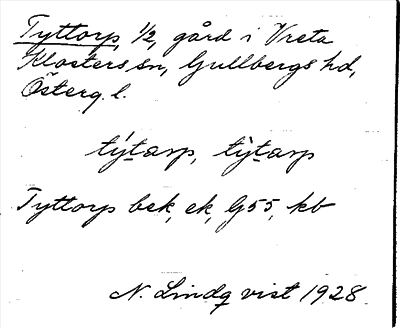 Tyttorp, 1/2, gård i Vreta
Klosters sn, Gullbergs hd,
Österg. l.
týtarp, tỳtarp
Tyttorp bek, ek, G55, kb
N. Lindqvist 1928